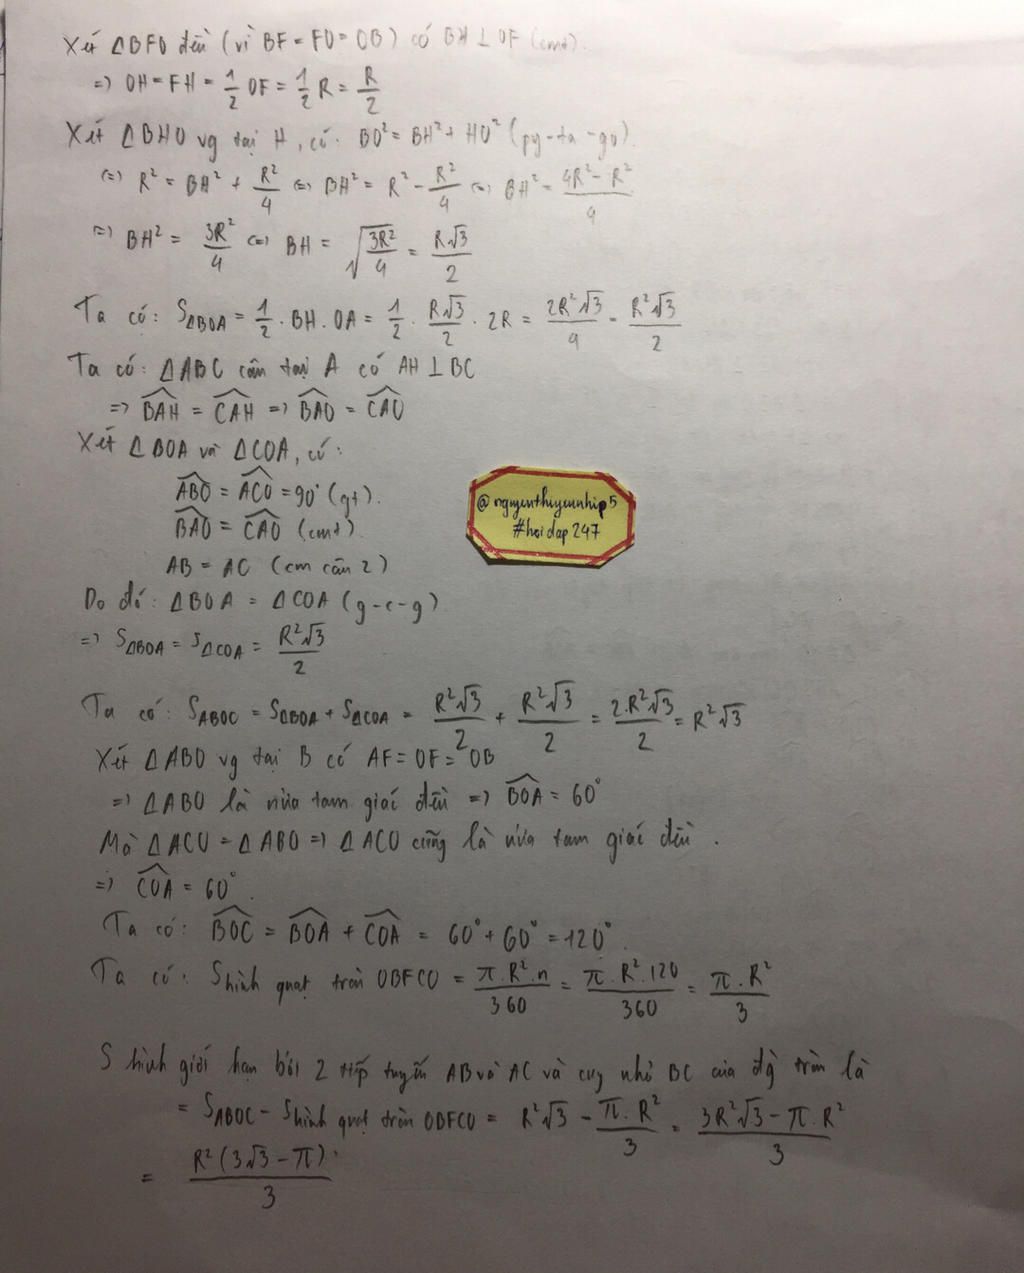 Xét ΔBFO đều (vì BF = FO = OB) có BH ⊥ OF (cmt).
=> OH = FH = 1/2 OF = 1/2 R = R/2
Xét ΔBHO vg tại H, có: BO² = BH² + HO² (py-ta-go).
<=> R² = BH² + R²/4 <=> BH² = R² - R²/4 <=> BH² = (4R² - R²)/4
<=> BH² = 3R²/4 <=> BH = √(3R²/4) = R√3/2
Ta có: SΔBOA = 1/2 . BH . OA = 1/2 . R√3/2 . 2R = 2R²√3/4 = R²√3/2
Ta có: ΔABC cân tại A có AH ⊥ BC
=> BAH = CAH => BAO = CAO
Xét ΔBOA và ΔCOA, có:
ABO = ACO = 90° (gt).
BAO = CAO (cmt)
AB = AC (cm câu 2)
Do đó: ΔBOA = ΔCOA (g-c-g)
=> SΔBOA = SΔCOA = R²√3/2
Ta có: SABOC = SΔBOA + SΔCOA = R²√3/2 + R²√3/2 = 2.R²√3/2 = R²√3
Xét ΔABO vg tại B có AF = OF = OB
=> ΔABO là nửa tam giác đều => BOA = 60°
Mà ΔACO = ΔABO => ΔACO cũng là nửa tam giác đều.
=> COA = 60°.
Ta có: BOC = BOA + COA = 60° + 60° = 120°.
Ta có: Shình quạt tròn OBFCO = π.R².n/360 = π.R².120/360 = π.R²/3
S hình giới hạn bởi 2 tiếp tuyến AB và AC và cung nhỏ BC của đg tròn là
= SABOC - Shình quạt tròn OBFCO = R²√3 - π.R²/3 = (3R²√3 - π.R²)/3
= R²(3√3 - π)/3.
@nguyenthiyennhip5
#hoidap247